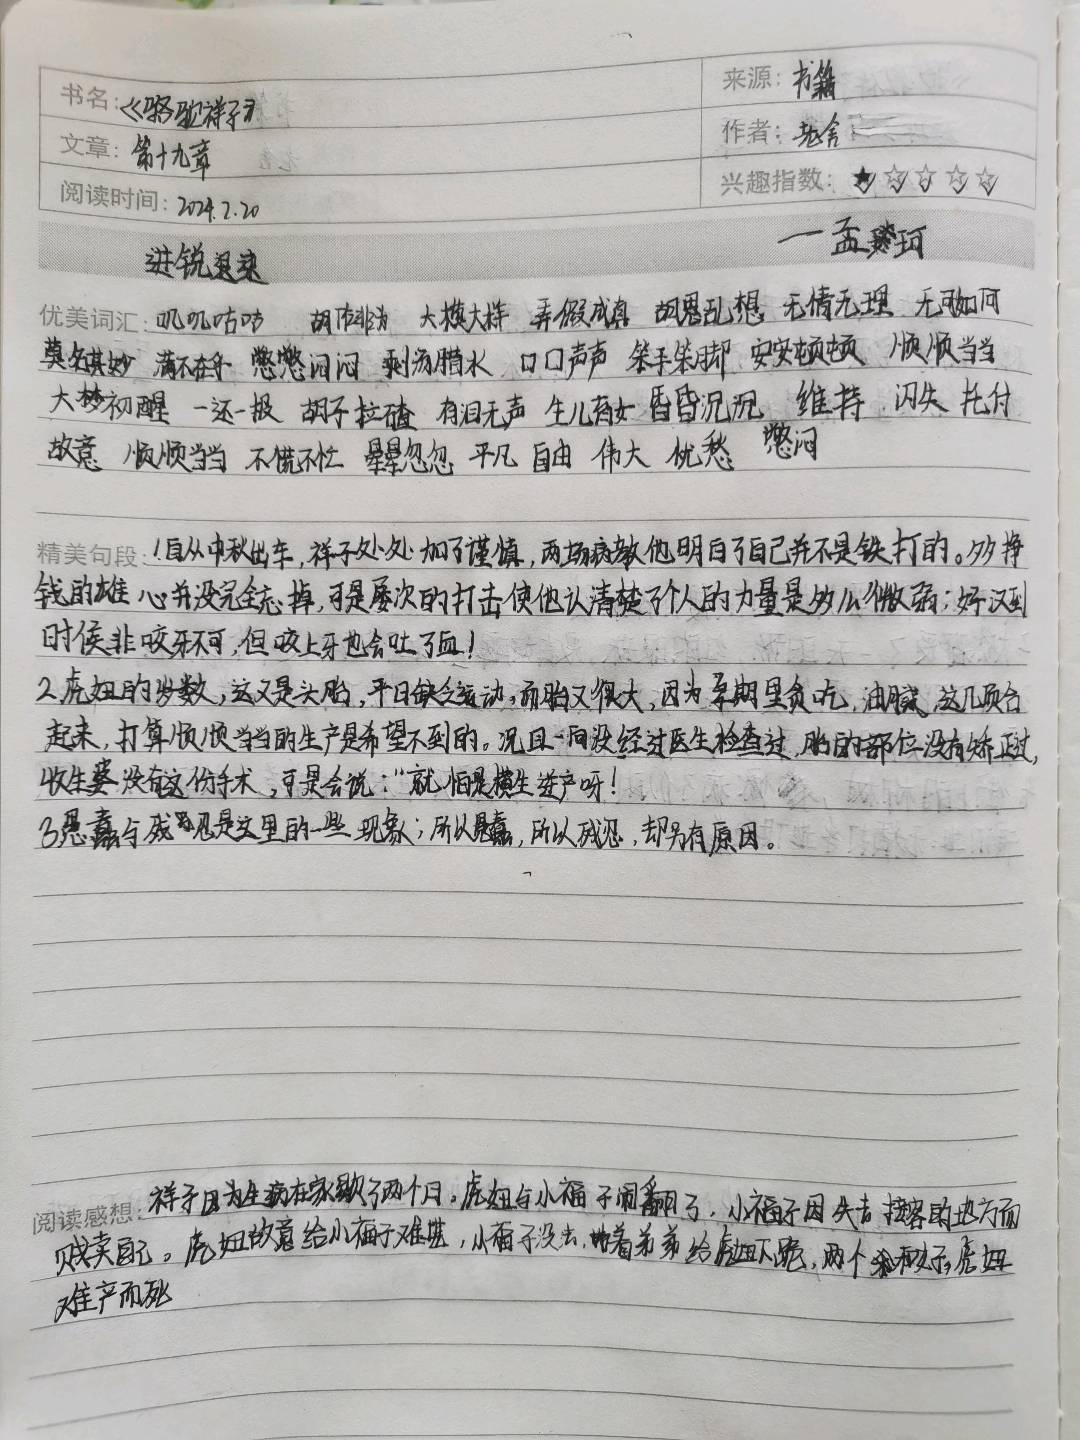 书名：《骆驼祥子》
来源：书籍
文章：第十九章
作者：老舍
阅读时间：2024.2.20
兴趣指数：★☆☆☆☆
进锐退速
一孟珂
优美词汇：叽叽咕咕 胡作非为 大模大样 弄假成真 胡思乱想 无情无理 无可如何
莫名其妙 满不在乎 憋憋闷闷 剩汤腊水 口口声声 笨手笨脚 安安顿顿 顺顺当当
大梦初醒 一还一报 胡子拉碴 有泪无声 生儿育女 昏昏沉沉 维持 闪失 托付
故意 顺顺当当 不慌不忙 晕晕忽忽 平凡 自由 伟大 忧愁 憋闷
精美句段：1自从中秋出车，祥子处处加了谨慎，两场病教他明白了自己并不是铁打的。多挣
钱的雄心并没完全忘掉，可是屡次的打击使他认清楚了个人的力量是多么微弱；好汉到
时候非咬牙不可，但咬上牙也会吐了血！
2.虎妞的岁数，这又是头胎，平日缺乏运动，而胎又很大，因为孕期里贪吃，油腻，这几项合
起来，打算顺顺当当的生产是希望不到的。况且一向没经过医生检查过，胎的部位没有矫正过，
收生婆没有这份手术，可是会说："就怕是横生逆产呀！
3.愚蠢与残忍是这里的一些现象；所以愚蠢，所以残忍，却另有原因。
阅读感想：祥子因为生病在家歇了两个月。虎妞与小福子闹翻了，小福子因失去接客的地方而
贱卖自己。虎妞故意给小福子难堪，小福子没法，带着弟弟给虎妞下跪，两个和好，虎妞
难产而死